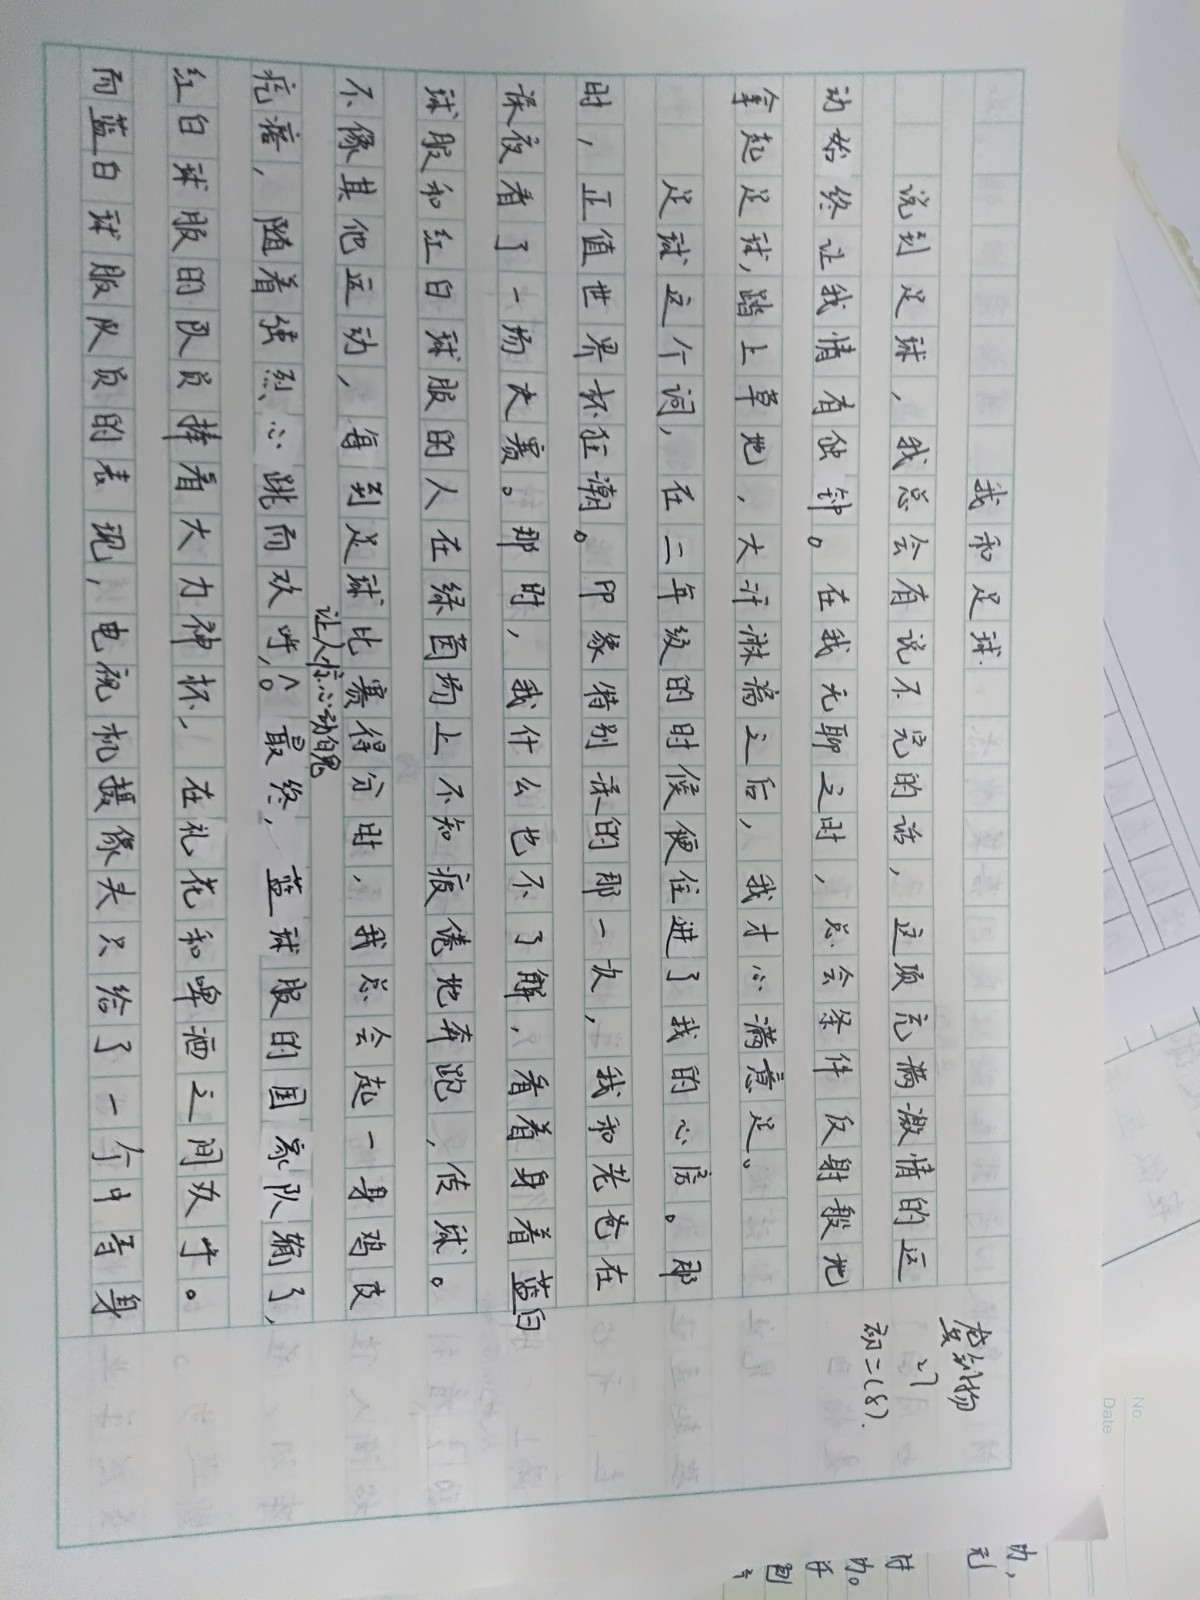 我和足球
说到足球，我总会有说不完的话，这项充满激情的运
动始终让我情有独钟。在我无聊之时，总会条件反射般地
拿起足球，踏上草地，大汗淋漓之后，我才心满意足。
足球这个词，在二年级的时候便住进了我的心房。那
时，正值世界杯狂潮。印象特别深的那一次，我和老爸在
深夜看了一场决赛。那时，我什么也不了解，看着身着蓝白
球服和红白球服的人在绿茵场上不知疲倦地奔跑，传球。
不像其他运动，每到足球比赛得分时，我总会起一身鸡皮
让人惊心动魄
疙瘩，随着强烈心跳而欢呼，。最终，蓝球服的国家队输了，
红白球服的队员捧着大力神杯，在礼花和啤酒之间欢乎。
而蓝白球服队员的表现，电视机摄像头只给了一个中等身
27
初二(8).
No.
Date